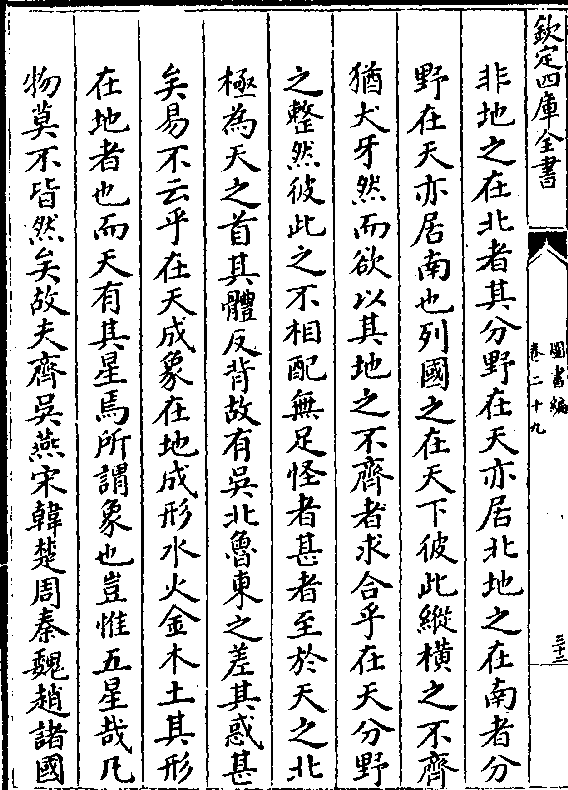 欽定四庫全書
圖書編
卷二十九
三十三
非地之在北者其分野在天亦居北地之在南者分
野在天亦居南也列國之在天下彼此縱橫之不齊
猶犬牙然而欲以其地之不齊者求合乎在天分野
之整然彼此之不相配無足怪者甚者至於天之北
極為天之首其體反背故有吳北魯東之差其惑甚
矣易不云乎在天成象在地成形水火金木土其形
在地者也而天有其星焉所謂象也豈惟五星哉凡
物莫不皆然矣故夫齊吳燕宋韓楚周秦魏趙諸國